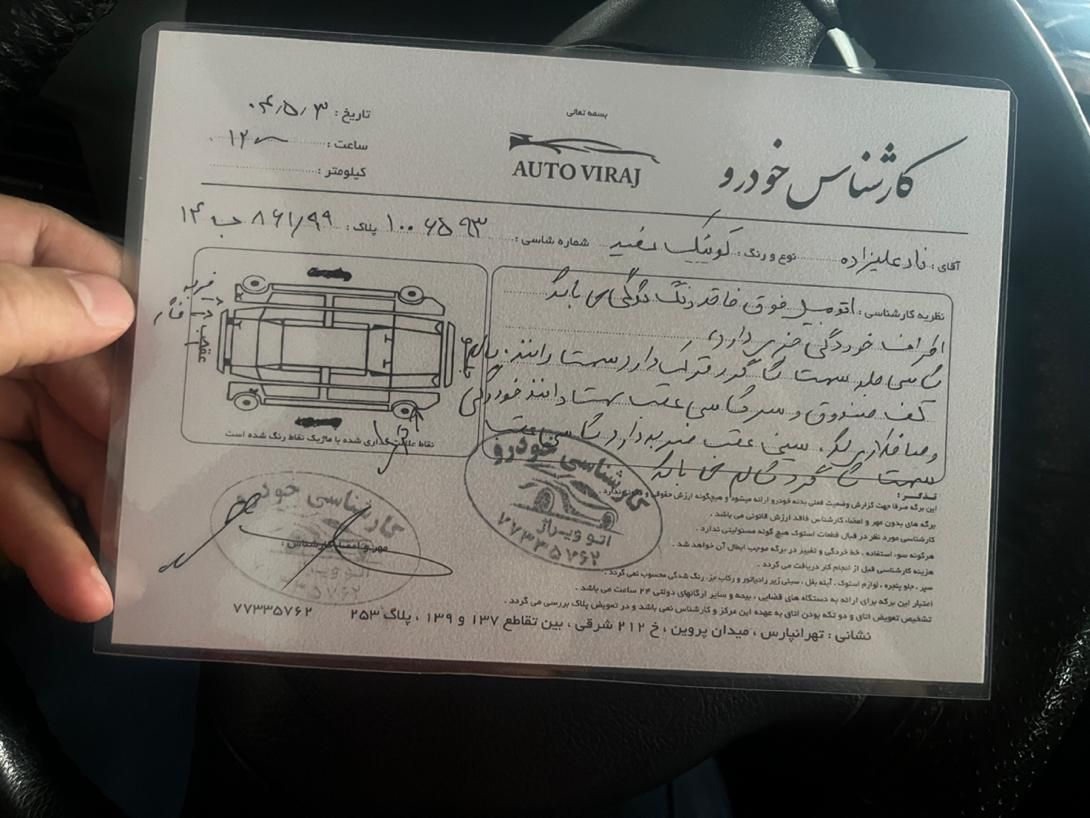 بسمه تعالی
کارشناس خودرو
AUTO VIRAJ
تاریخ : ۰۴/۵/۳
ساعت : ۱۲
کیلومتر :
آقای : نادعلیزاده نوع و رنگ : کوئیک سفید شماره شاسی : ۱۰۰۶۵۹۳ پلاک : ۸۶۱/۹۹ ب ۱۴
نظریه کارشناسی : اتومبیل فوق فاقد رنگ میباشد
اطراف خوردگی جزئی دارد
شاسی جلو سمت شاگرد ترک دارد سمت راننده
کف صندوق و سر شاسی عقب سمت راننده خوردگی
و صافکاری سینی عقب ضربه دارد شاسی عقب
سمت شاگرد سالم می باشد
ضربه
عقب
نقاط علامت گذاری شده با ماژیک نقاط رنگ شده است
تذکر :
این برگه صرفا جهت گزارش وضعیت فعلی بدنه خودرو ارائه میشود و هیچگونه ارزش حقوقی و ندارد .
برگه های بدون مهر و امضاء کارشناس فاقد ارزش قانونی می باشد .
کارشناسی مورد نظر در قبال قطعات استوک هیچ گونه مسئولیتی ندارد .
هرگونه سوء استفاده ، خط خردگی و تغییر در برگه موجب ابطال آن خواهد شد .
هزینه کارشناسی قبل از انجام کار دریافت می گردد .
سپر ، جلو پنجره ، لوازم استوک ، آینه بغل ، سینی زیر رادیاتور و رکاب جز، رنگ شدگی محسوب نمی گردد .
اعتبار این برگه برای ارائه به دستگاه های قضایی ، بیمه و سایر ارگانهای دولتی ۲۴ ساعت می باشد .
تشخیص تعویض اتاق و دو تکه بودن اتاق به عهده این مرکز و کارشناس نمی باشد و در تعویض پلاک بررسی می گردد .
مهر و امضاء کارشناس :
کارشناسی خودرو
اتو ویراژ
۷۷۳۳۵۷۶۲
کارشناسی خودرو
اتو ویراژ
۷۷۳۳۵۷۶۲
نشانی : تهرانپارس ، میدان پروین ، خ ۲۱۲ شرقی ، بین تقاطع ۱۳۷ و ۱۳۹ ، پلاک ۲۵۳ ۷۷۳۳۵۷۶۲